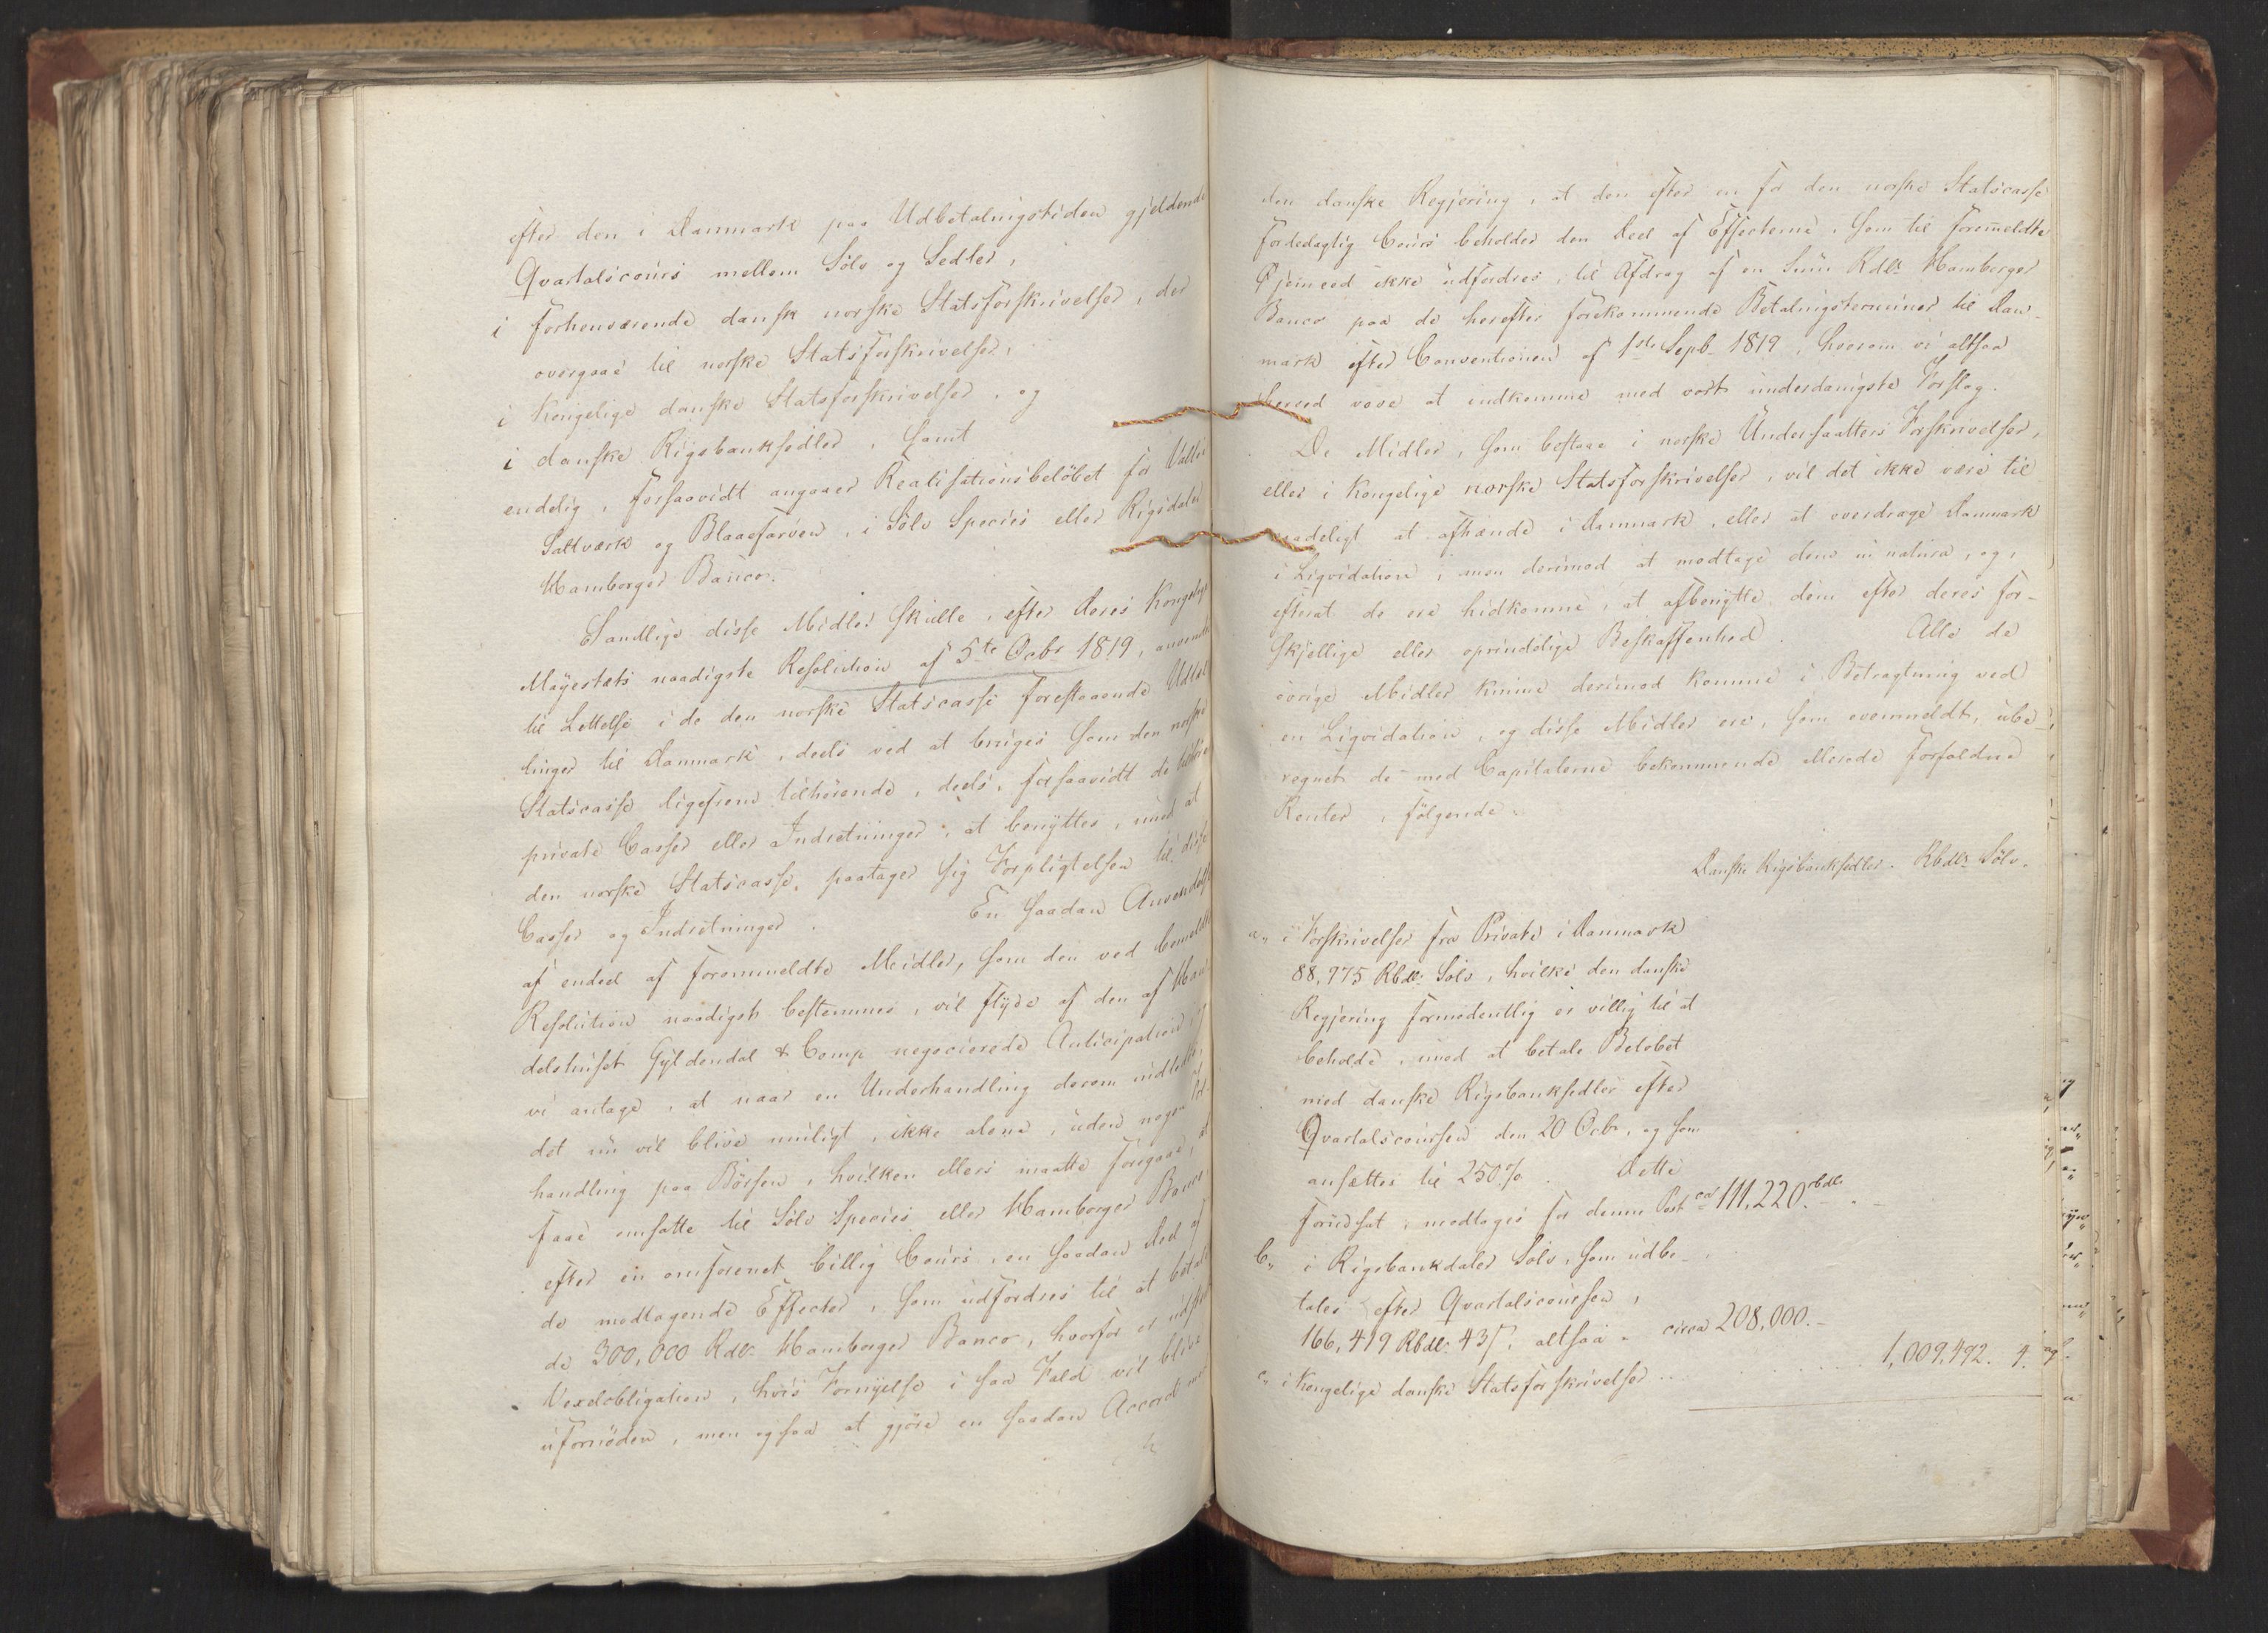 efter den i Danmark paa Udbetalingstiden gjeldende
Qvartalscours mellem Sølv og Sedler,
i forhenværende dansk norske Statsforskrivelser, der
overgaae til norske Statsforskrivelser,
i Kongelige danske Statsforskrivelser, og
i danske Rigsbanksedler, samt
endelig, forsaavidt angaaer Realisationsbeløbet for Valløe
Saltværk og Blaaefarven, i Sølv Species eller Rigsdaler
Hamborger Banco.
Samtlige disse Midler skulle, efter Deres Kongelige
Mayestæts naadigste Resolution af 5te Octbr 1819, anvendes
til Lettelse i de den norske Statscasse forestaaende Udbeta
linger til Danmark, deels ved at bruges som den norske
Statscasse ligefrem tilhørende, deels, forsaavidt de tilhøre
private Casser eller Indretninger, at benyttes, imod at
den norske Statscasse, paatager sig Forpligtelsen til disse
Casser og Indretninger. En saadan Anvendelse
af endeel af forommeldte Midler, som den ved bemeldte
Resolution naadigst bestemmes, vil flyde af den af Han
delshuset Gyldendal & Comp negocierede Anticipation
vi antage, at naar en Underhandling derom indledes,
det nu vil blive muligt, ikke alene, uden nogen For
handling paa Børsen, hvilken ellers maatte foregaae, at
faae omsatte til Sølv Species eller Hamborger Banco
efter en omforenet billig Cours, en saadan Deel af
de modtagende Effecter, som udfordres til at betale
de 300,000 Rdlr Hamborger Banco, hvorfor er udstedt
Vexelobligation, hvis Fornyelse i saa Fald vil blive
ufornøden, men ogsaa at gjøre en saadan Accord med
den danske Regjering, at den efter en for den norske Statscasse
fordelagtig Cours beholder den Deel af Effecterne, som til forommeldte
Øjemeed ikke udfordres, til Afdrag af en Sum Rdlr Hamborger
Banco paa de herefter forekommende Betalingsterminer til Dan-
mark efter Conventionen af 1ste Septb. 1819, hvorom vi altsaa
herved vove at indkomme med vort underdanigste Forslag.
De Midler, som bestaae i norske Undersaatters Forskrivelser,
eller i Kongelige norske Statsforskrivelser, vil det ikke være til
raadeligt at afhænde i Danmark, eller at overdrage Danmark
i Liqvidation, men derimod at modtage dem in natura, og,
efterat de ere hidkomne, at afbenytte dem efter deres for-
skjellige eller oprindelige Beskaffenhed. Alle de
øvrige Midler kunne derimod komme i Betragtning ved
en Liqvidation, og disse Midler ere, som ovenmeldt, ube-
regnet de med Capitalerne bekommende allerede forfaldne
Renter, følgende.
Danske Rigsbanksedler. Rbdlr Sølv.
a,, i Forskrivelser fra Private i Danmark
88,975 Rbdlr Sølv, hvilke den danske
Regjering formodentlig er villig til at
beholde, imod at betale Beløbet
med danske Rigsbanksedler efter
Qvartalscoursen den 20 Octbr, og som
ansættes til 250 %. Dette
forudsat, modtages for denne Post ca 111,220 rbdlr
b,, i Rigsbankdaler Sølv, som udbe-
tales efter Qvartalscoursen,
166,419 Rbdlr 43 s, altsaa circa 208,000.-
c,, i Kongelige danske Statsforskrivelser .. 1,009,492. 4.